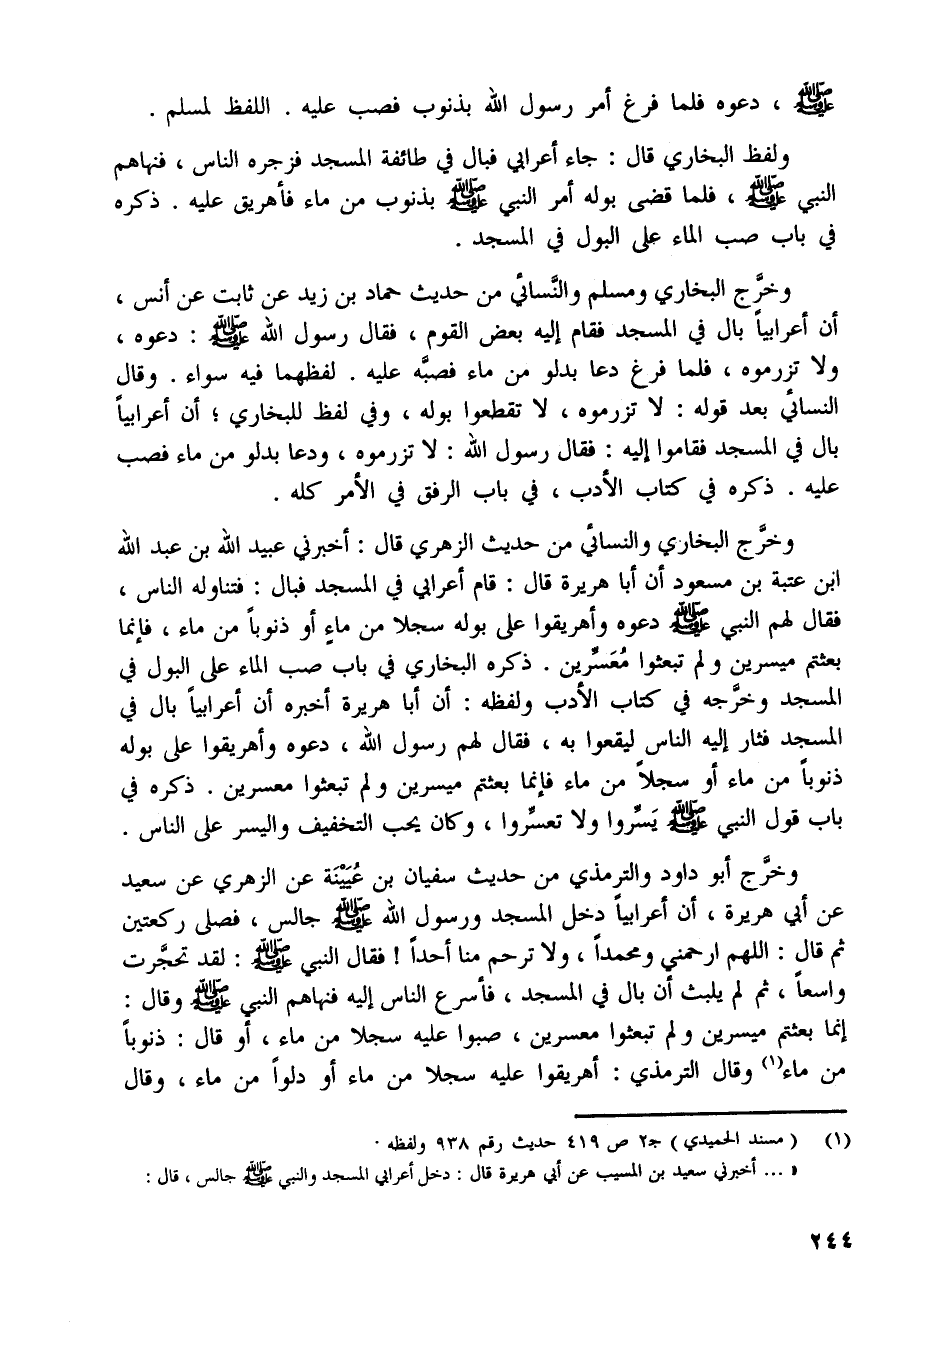 ﷺ ، دعوه فلما فرغ أمر رسول الله بذنوب فصب عليه . اللفظ لمسلم .
ولفظ البخاري قال : جاء أعرابي فبال في طائفة المسجد فزجره الناس ، فنهاهم
النبي ﷺ ، فلما قضى بوله أمر النبي ﷺ بذنوب من ماء فأهريق عليه . ذكره
في باب صب الماء على البول في المسجد .
وخرَّج البخاري ومسلم والنَّسائي من حديث حماد بن زيد عن ثابت عن أنس ،
أن أعرابياً بال في المسجد فقام إليه بعض القوم ، فقال رسول الله ﷺ : دعوه ،
ولا تزرموه ، فلما فرغ دعا بدلو من ماء فصبَّه عليه . لفظهما فيه سواء . وقال
النسائي بعد قوله : لا تزرموه ، لا تقطعوا بوله ، وفي لفظ للبخاري ؛ أن أعرابياً
بال في المسجد فقاموا إليه : فقال رسول الله : لا تزرموه ، ودعا بدلو من ماء فصب
عليه . ذكره في كتاب الأدب ، في باب الرفق في الأمر كله .
وخرَّج البخاري والنسائي من حديث الزهري قال : أخبرني عبيد الله بن عبد الله
ابن عتبة بن مسعود أن أبا هريرة قال : قام أعرابي في المسجد فبال : فتناوله الناس ،
فقال لهم النبي ﷺ دعوه وأهريقوا على بوله سجلا من ماءٍ أو ذنوباً من ماء ، فإنما
بعثتم ميسرين ولم تبعثوا مُعَسِّرين . ذكره البخاري في باب صب الماء على البول في
المسجد وخرَّجه في كتاب الأدب ولفظه : أن أبا هريرة أخبره أن أعرابياً بال في
المسجد فثار إليه الناس ليقعوا به ، فقال لهم رسول الله ، دعوه وأهريقوا على بوله
ذنوباً من ماء أو سجلاً من ماء فإنما بعثتم ميسرين ولم تبعثوا معسرين . ذكره في
باب قول النبي ﷺ يَسِّروا ولا تعسِّروا ، وكان يحب التخفيف واليسر على الناس .
وخرَّج أبو داود والترمذي من حديث سفيان بن عُيَيْنَة عن الزهري عن سعيد
عن أبي هريرة ، أن أعرابياً دخل المسجد ورسول الله ﷺ جالس ، فصلى ركعتين
ثم قال : اللهم ارحمني ومحمداً ، ولا ترحم منا أحداً ! فقال النبي ﷺ : لقد تحجَّرت
واسعاً ، ثم لم يلبث أن بال في المسجد ، فأسرع الناس إليه فنهاهم النبي ﷺ وقال :
إنما بعثتم ميسرين ولم تبعثوا معسرين ، صبوا عليه سجلا من ماء ، أو قال : ذنوباً
من ماء(١) وقال الترمذي : أهريقوا عليه سجلا من ماء أو دلواً من ماء ، وقال
(١) ( مسند الحميدي ) جـ٢ ص ٤١٩ حديث رقم ٩٣٨ ولفظه .
« ... أخبرني سعيد بن المسيب عن أبي هريرة قال : دخل أعرابي المسجد والنبي ﷺ جالس ، قال :
٢٤٤